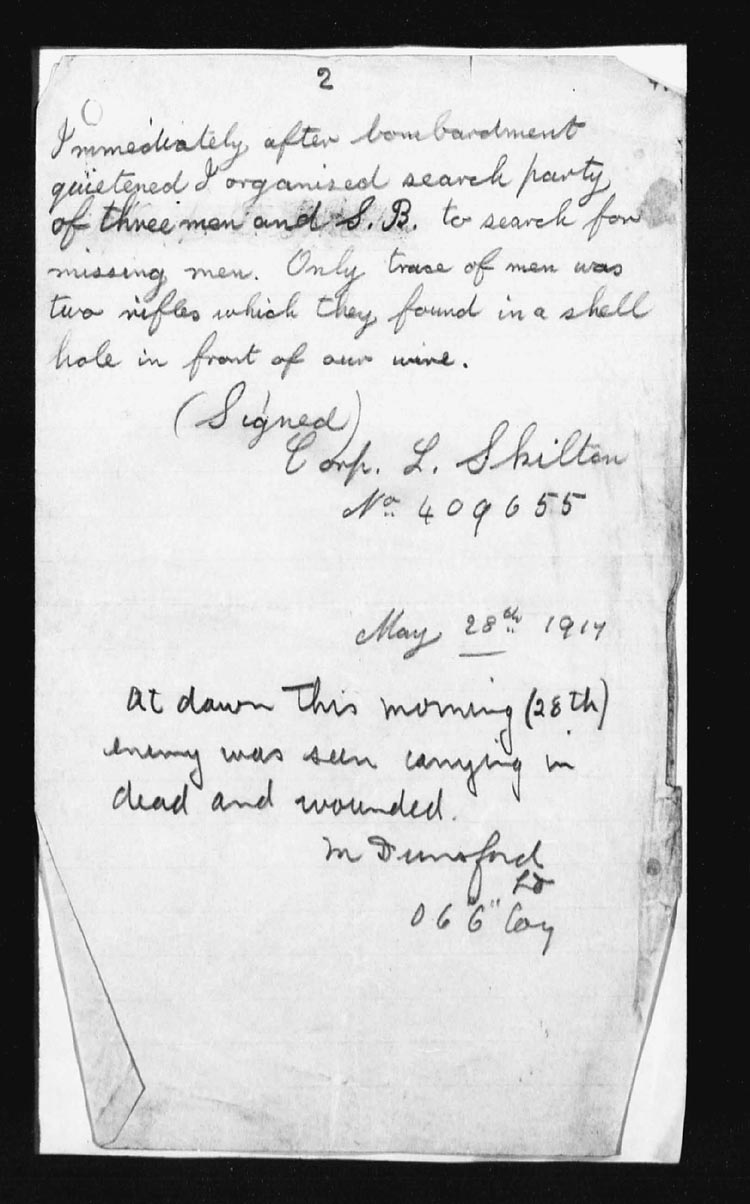 2
Immediately after bombardment
quietened I organised search party
of three men and S.B. to search for
missing men. Only trace of men was
two rifles which they found in a shell
hole in front of our wire.
(Signed)
Corp. L. Skilton
No. 409655
May 28th 1917
At dawn this morning (28th)
enemy was seen carrying in
dead and wounded.
M Dunsford
Lt
O C "C" Coy